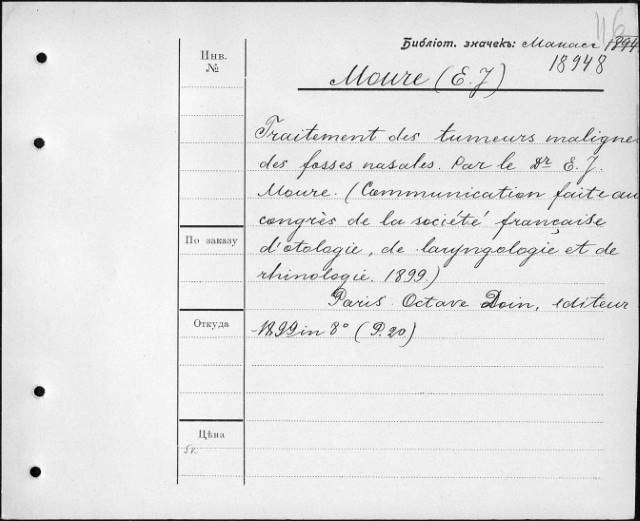 116
Библіот. значекъ: Манасе 1894
18948
Инв.
№
Moure (E. J)
Traitement des tumeurs maligne
des fosses nasales. Par le Dr E. J.
Moure. (Communication faite au
congrès de la société française
По заказу
d'otologie, de laryngologie et de
rhinologie. 1899.)
Paris. Octave Doin, editeur
Откуда
1899 in 8° (P. 20)
Цѣна
5к